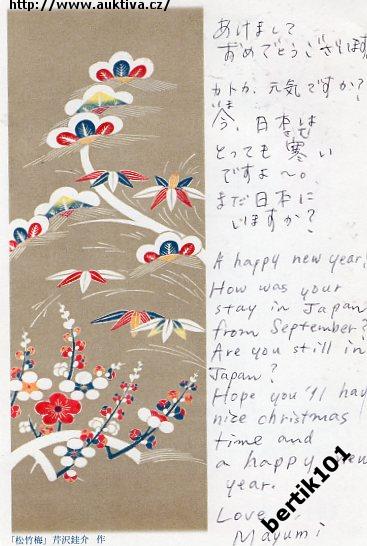 http://www.auktiva.cz/
あけまして
おめでとうございます
カトカ、元気ですか?
いま
今、日本は
さむ
とっても寒い
ですよ〜。
まだ日本に
いますか?
A happy new year!
How was your
stay in Japan
from September?
Are you still in
Japan?
Hope you'll have
nice christmas
time and
a happy new
year.
Love
Mayumi
bertik101
「松竹梅」芹沢銈介 作